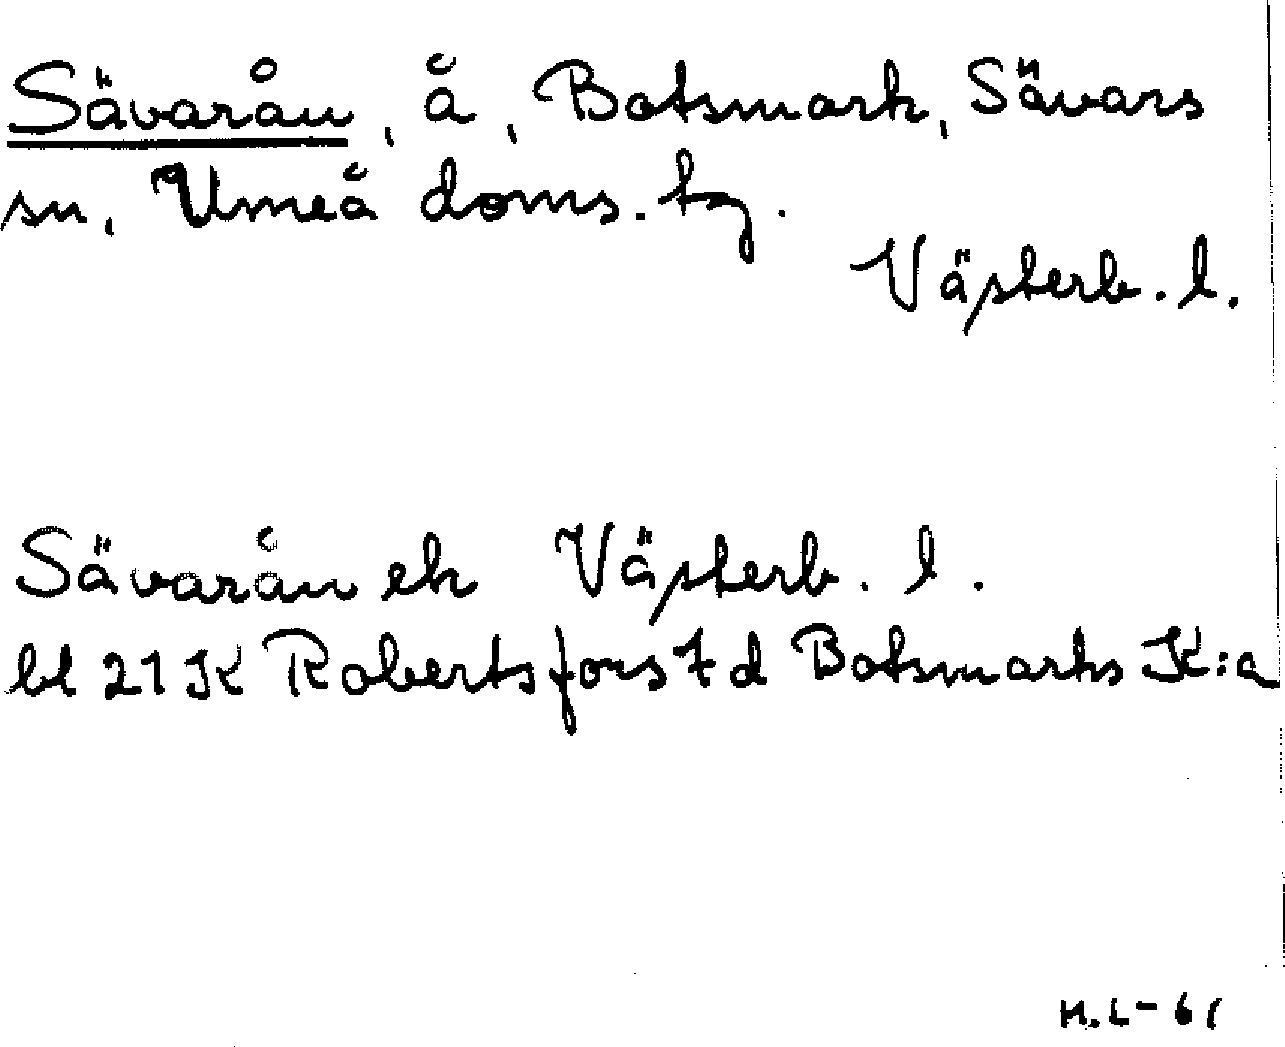 Sävarån, å, Botsmark, Sävars
sn, Umeå doms. tg.
Västerb. l.
Sävarån ek Västerb. l.
bl 21 K Robertsfors 7 d Botsmarks K:a
H.L-61